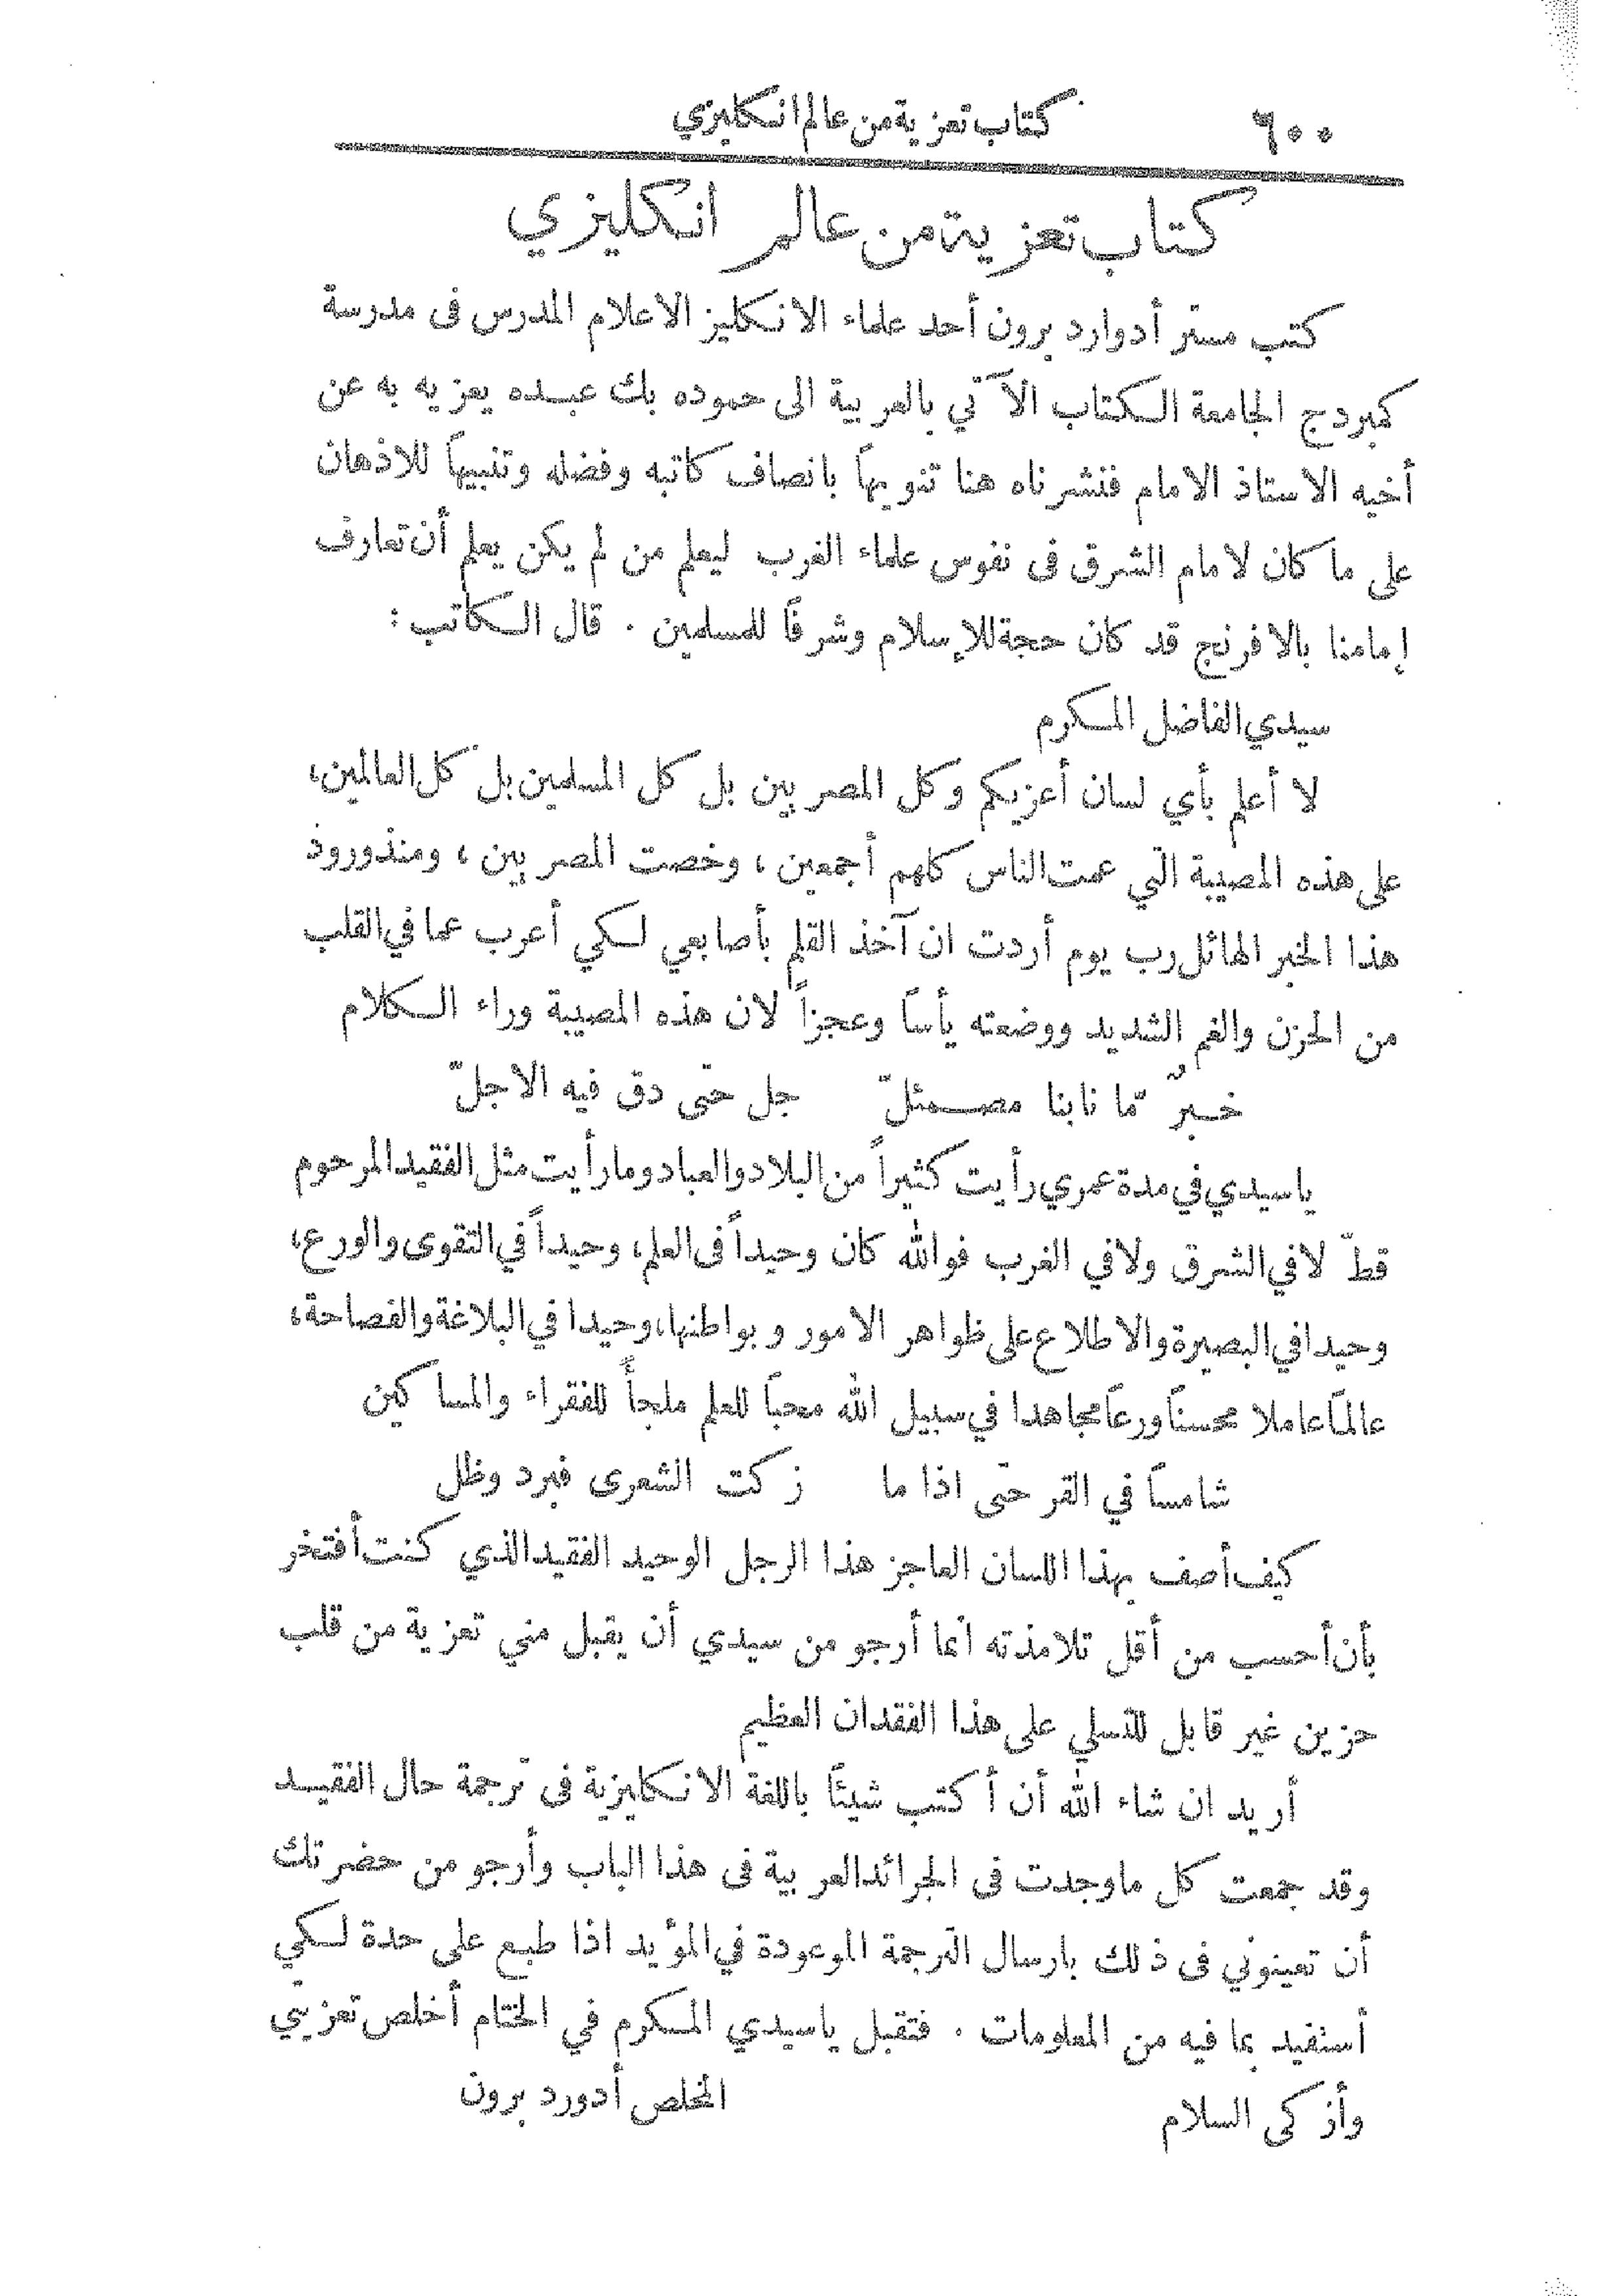 ٦٠٠
كتاب تعزية من عالم انكليزي
كتاب تعزية من عالم انكليزي
كتب مستر أدوارد برون أحد علماء الانكليز الاعلام المدرس فى مدرسة
كمبردج الجامعة الكتاب الآتي بالعربية الى حموده بك عبده يعزيه به عن
أخيه الاستاذ الامام فنشرناه هنا تنويهاً بانصاف كاتبه وفضله وتنبيهاً للاذهان
على ما كان لامام الشرق فى نفوس علماء الغرب ليعلم من لم يكن يعلم أن تعارف
إمامنا بالافرنج قد كان حجة للإسلام وشرفاً للمسلمين . قال الكاتب :
سيدي الفاضل المكرم
لا أعلم بأي لسان أعزيكم وكل المصريين بل كل المسلمين بل كل العالمين،
على هذه المصيبة التي عمت الناس كلهم أجمعين ، وخصت المصريين ، ومنذ ورود
هذا الخبر الهائل رب يوم أردت ان آخذ القلم بأصابعي لكي أعرب عما في القلب
من الحزن والغم الشديد ووضعته يأساً وعجزاً لان هذه المصيبة وراء الكلام
خبرٌ مّا نابنا مصمئلّ جل حتى دق فيه الاجلّ
ياسيدي في مدة عمري رأيت كثيراً من البلاد والعباد وما رأيت مثل الفقيد المرحوم
قطّ لا في الشرق ولا في الغرب فوالله كان وحيداً فى العلم، وحيداً في التقوى والورع،
وحيدا في البصيرة والاطلاع على ظواهر الامور وبواطنها، وحيدا في البلاغة والفصاحة،
عالماً عاملا محسناً ورعاً مجاهدا في سبيل الله محباً للعلم ملجأً للفقراء والمساكين
شامساً في القر حتى اذا ما زكت الشعرى فبرد وظل
كيف أصف بهذا اللسان العاجز هذا الرجل الوحيد الفقيد الذي كنت أفتخر
بأن أحسب من أقل تلامذته انما أرجو من سيدي أن يقبل مني تعزية من قلب
حزين غير قابل للتسلي على هذا الفقدان العظيم
أريد ان شاء الله أن أكتب شيئاً باللغة الانكليزية فى ترجمة حال الفقيد
وقد جمعت كل ما وجدت فى الجرائد العربية فى هذا الباب وأرجو من حضرتك
أن تعينوني فى ذلك بارسال الترجمة الموعودة في المؤيد اذا طبع على حدة لكي
أستفيد بما فيه من المعلومات . فتقبل ياسيدي المكرم في الختام أخلص تعزيتي
وأزكى السلام المخلص أدورد برون